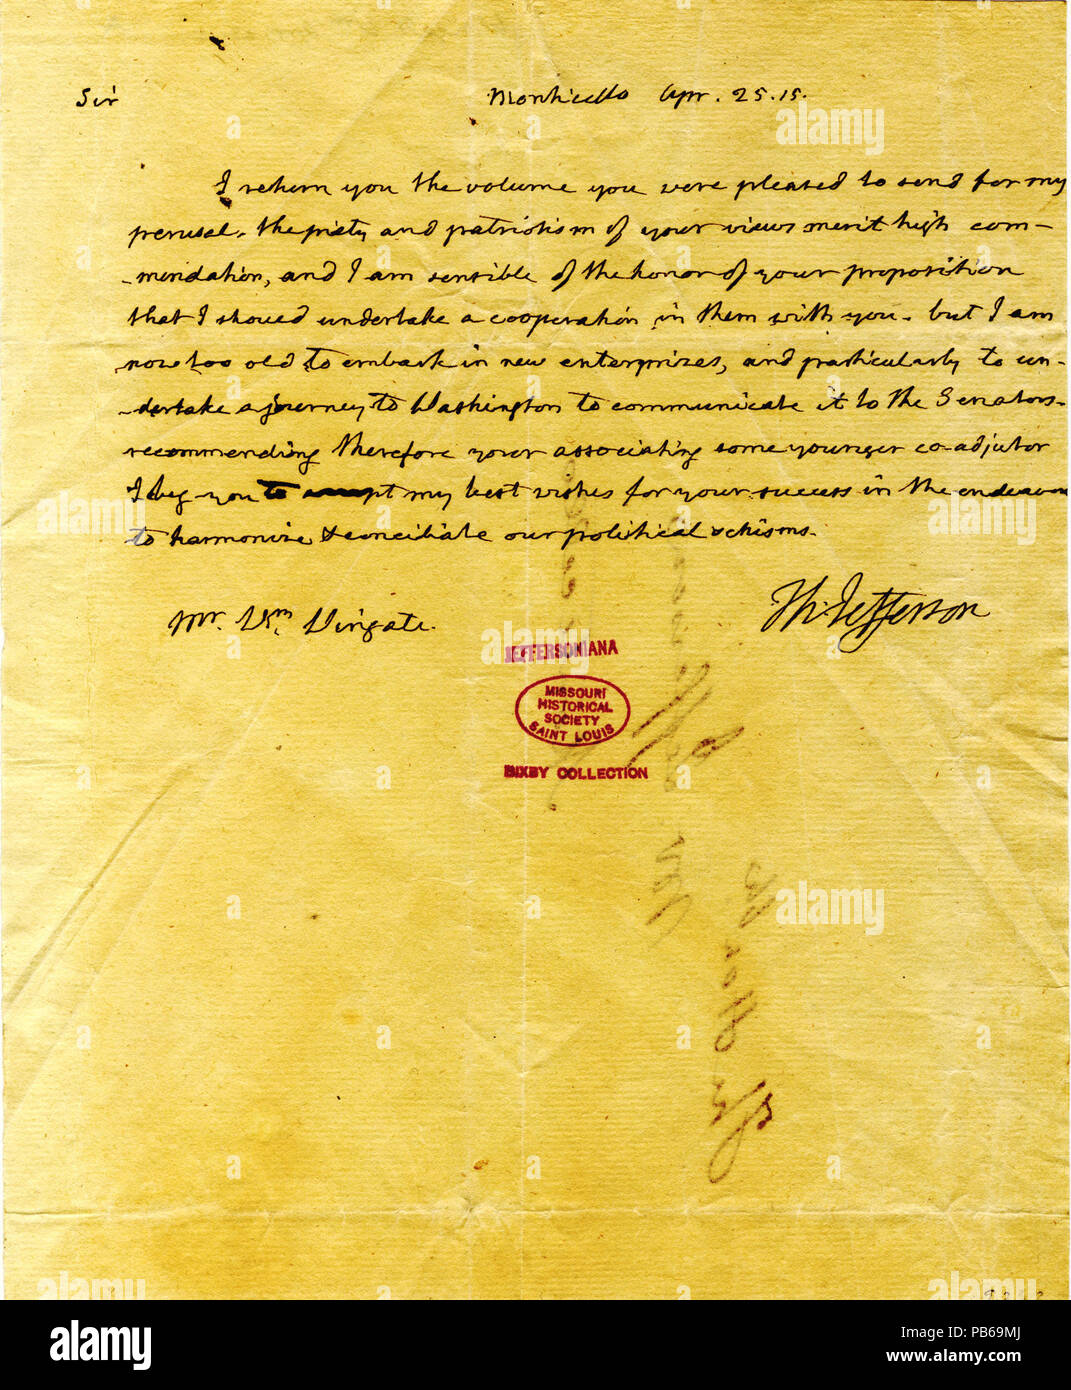 Sir Monticello Apr. 25. 15.
I return you the volume you were pleased to send for my
perusal. the piety and patriotism of your views merit high com-
-mendation, and I am sensible of the honor of your proposition
that I should undertake a cooperation in them with you. but I am
now too old to embark in new enterprizes, and particularly to un-
-dertake a journey to Washington to communicate it to the Senators.
recommending therefore your associating some younger co-adjutor
I beg you to accept my best wishes for your success in the endeavor
to harmonize & conciliate our political schisms.
Th: Jefferson
Mr. Wm Wingate.
JEFFERSONIANA
MISSOURI
HISTORICAL
SOCIETY
SAINT LOUIS
BIXBY COLLECTION
alamy
Image ID: PB69MJ
www.alamy.com